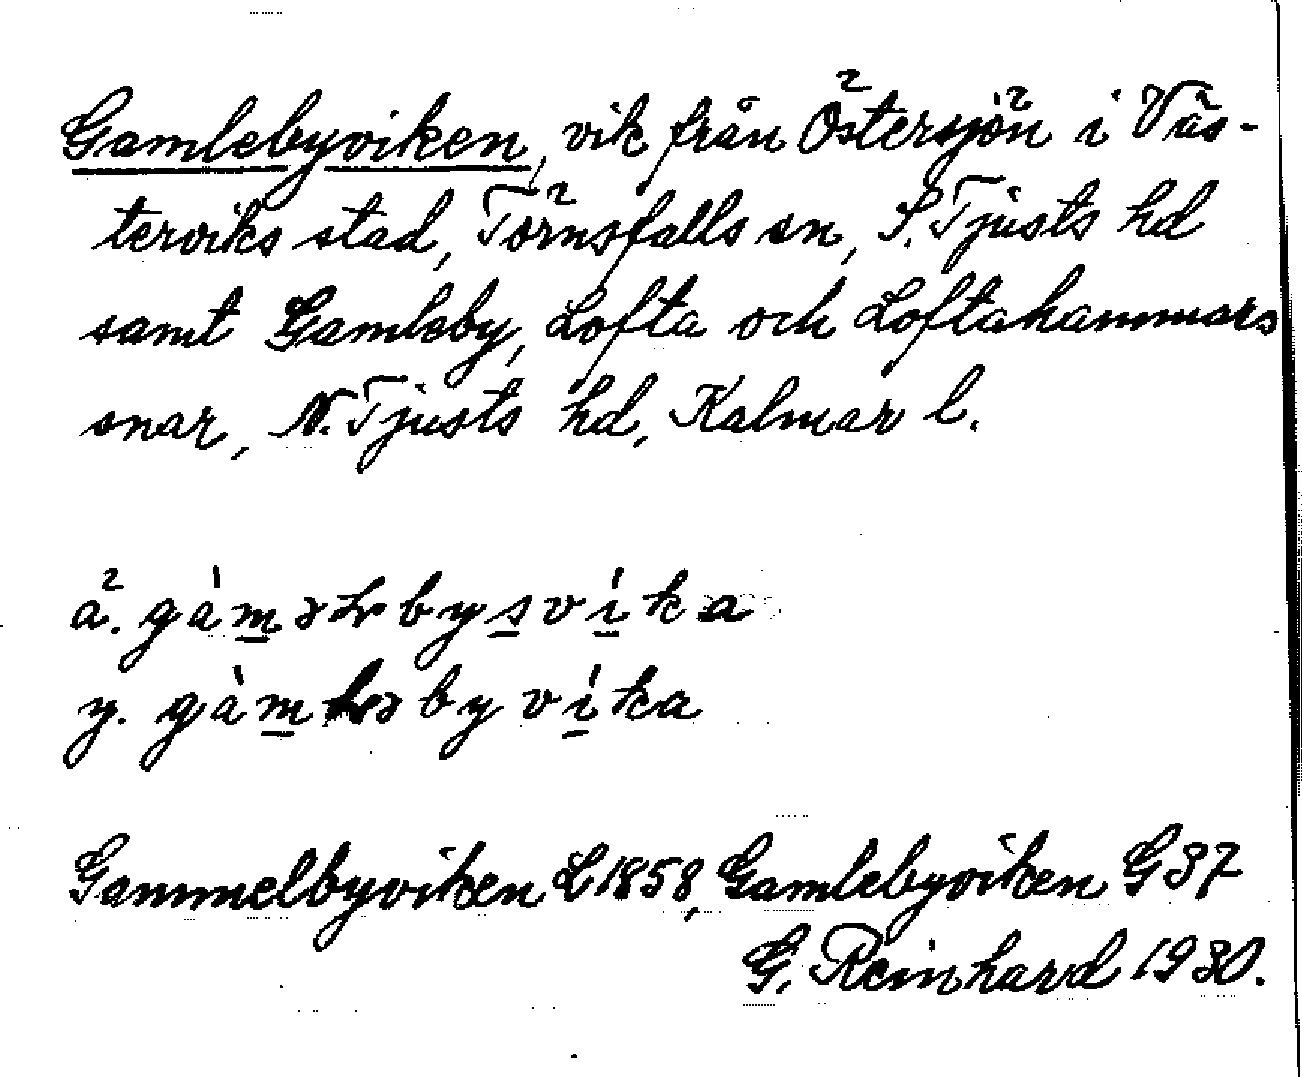 Gamlebyviken, vik från Östersjön i Väs-
terviks stad, Törnsfalls sn, S. Tjusts hd
samt Gamleby, Lofta och Loftahammars
snar, N. Tjusts hd, Kalmar l.
ä. gàməɫbysvíka
y. gàmɫəbyvíka
Gammelbyviken L 1858, Gamlebyviken G 37
G. Reinhard 1930.